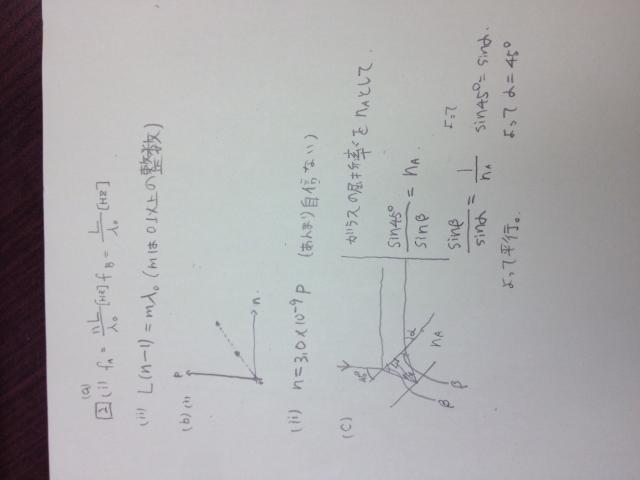 (a)
[2] (i) f_A = nL/λ₀ [Hz] f_B = L/λ₀ [Hz]
(ii) L(n-1) = mλ₀ (mは0以上の整数)
(b) (i)
P
n
(ii) n = 3.0×10⁻⁹ P (あんまり自信ない)
(C)
45°
α
n_A
β
β
ガラスの屈折率をn_Aとして.
sin45°/sinβ = n_A
sinβ/sinα = 1/n_A
よって
sin45° = sinα.
よって α = 45°
よって平行。